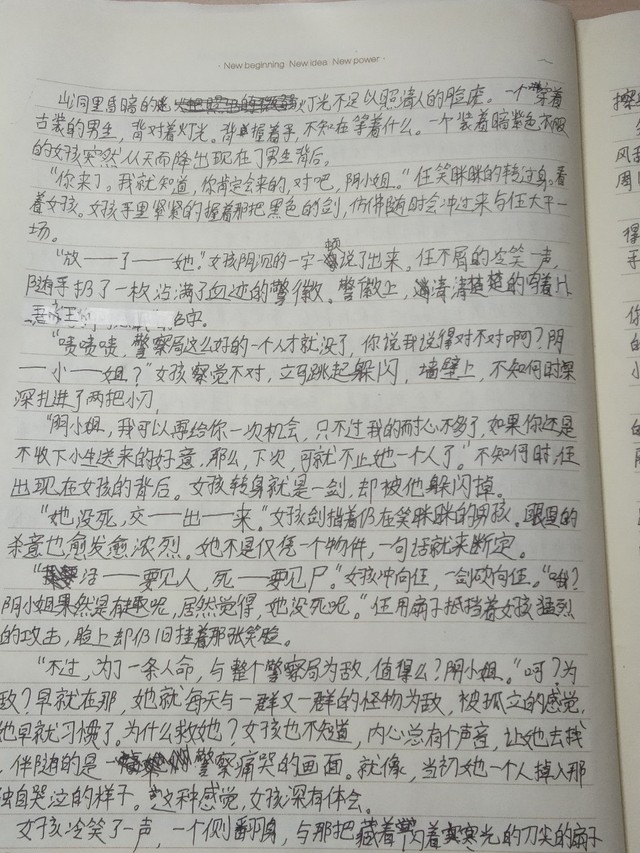 · New beginning New idea New power ·
山洞里昏暗的灯光不足以照清人的脸庞。一个穿着
古装的男生，背对着灯光。背握着手，不知在等着什么。一个装着暗紫色衣服
的女孩突然从天而降出现在了男生背后。
“你来了。我就知道，你肯定会来的，对吧，阴小姐。”任笑眯眯的转过身。看
着女孩。女孩手里紧紧的握着那把黑色的剑，仿佛随时会冲过来与任大干一
场。
“放——了——她。”女孩阴沉的一字一顿说了出来。任不屑的冷笑一声，
随手扔了一枚沾满了血迹的警徽。警徽上，清清楚楚的写着
“啧啧啧，警察局这么好的一个人才就没了，你说我说得对不对啊？阴
——小——姐？”女孩察觉不对，立马跳起躲闪，墙壁上，不知何时深
深扎进了两把小刀，
“阴小姐，我可以再给你一次机会，只不过我的耐心不多了，如果你还是
不收下小生送来的好意，那么，下次，可就不止她一个人了。”不知何时，任
出现在女孩的背后。女孩转身就是一剑，却被他躲闪掉。
“她没死，交——出——来。”女孩剑指着仍在笑眯眯的男孩。眼里的
杀意也愈发愈浓烈。她不是仅凭一个物件，一句话就来断定。
“活——要见人，死——要见尸。”女孩冲向任，一剑砍向任。“哈？
阴小姐果然是有趣呢，居然觉得，她没死呢。”任用扇子抵挡着女孩猛烈
的攻击，脸上却仍旧挂着那张笑脸。
“不过，为了一条人命，与整个警察局为敌，值得么？阴小姐。”呵？为
敌？早就在那，她就每天与一群又一群的怪物为敌，被孤立的感觉，
她早就习惯了。为什么救她？女孩也不知道，内心总有个声音，让她去找
，伴随的是警察痛哭的画面。就像，当初她一个人掉入那
独自哭泣的样子。这种感觉，女孩深有体会。
女孩冷笑了一声，一个侧翻身，与那把藏着闪着寒光的刀尖的扇子